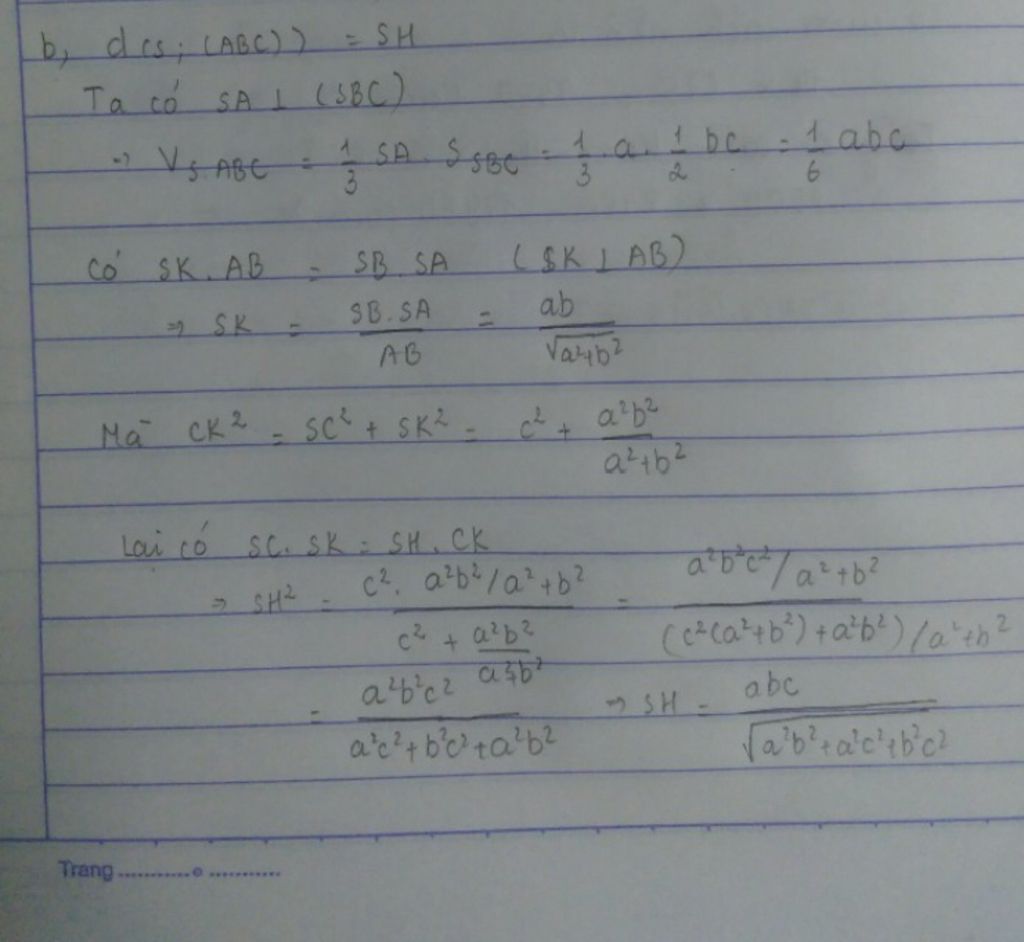 b, d(S; (ABC)) = SH
Ta có SA ⊥ (SBC)
⇒ V_{S.ABC} = 1/3 SA. S_{SBC} = 1/3 . a. 1/2 bc = 1/6 abc
Có SK. AB = SB. SA (SK ⊥ AB)
⇒ SK = SB.SA / AB = ab / √(a²+b²)
Mà CK² = SC² + SK² = c² + a²b² / (a²+b²)
Lại có SC. SK = SH. CK
⇒ SH² = (c². a²b²/a²+b²) / (c² + a²b²/(a²+b²)) = (a²b²c²/a²+b²) / ((c²(a²+b²)+a²b²)/a²+b²)
= a²b²c² / (a²c²+b²c²+a²b²) ⇒ SH = abc / √(a²b²+a²c²+b²c²)
Trang